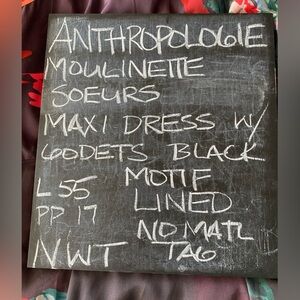 ANTHROPOLOGIE
MOULINETTE
SOEURS
MAXI DRESS W/
GODETS BLACK
L 55 MOTIF
PP 17 LINED
NO MATL
NWT TAG